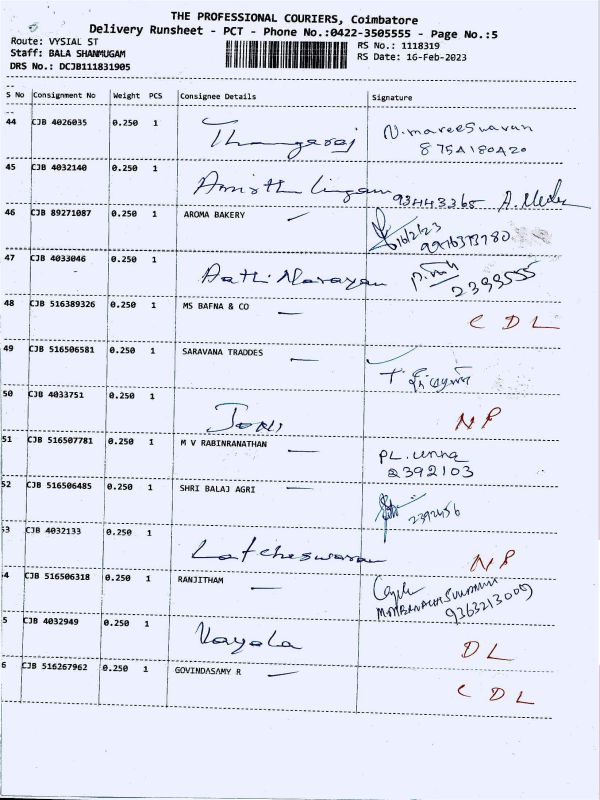 THE PROFESSIONAL COURIERS, Coimbatore
Delivery Runsheet - PCT - Phone No.:0422-3505555 - Page No.:5
Route: VYSIAL ST
RS No.: 1118319
Staff: BALA SHANMUGAM
RS Date: 16-Feb-2023
DRS No.: DCJB111831905
S No Consignment No Weight PCS Consignee Details Signature
44 CJB 4026035 0.250 1 Thangaraj N. mareeswaran
875A180A20
45 CJB 4032140 0.250 1 Amirth Lingam 93443365
46 CJB 89271087 0.250 1 AROMA BAKERY 16/2/23
47 CJB 4033046 0.250 1 Aathi Narayan 2399555
48 CJB 516389326 0.250 1 MS BAFNA & CO — C D L
49 CJB 516506581 0.250 1 SARAVANA TRADDES —
50 CJB 4033751 0.250 1 JONI NP
51 CJB 516507781 0.250 1 M V RABINRANATHAN — PL.
2392103
52 CJB 516506485 0.250 1 SHRI BALAJ AGRI — 2392456
53 CJB 4032133 0.250 1 Latcheswaran NP
4 CJB 516506318 0.250 1 RANJITHAM —
9363213009
5 CJB 4032949 0.250 1 Vayola DL
6 CJB 516267962 0.250 1 GOVINDASAMY R — C D L